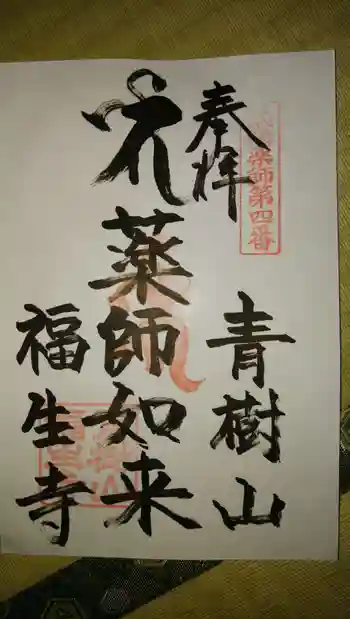 奉拝
青樹山
薬師如来
福生寺
薬師第四番